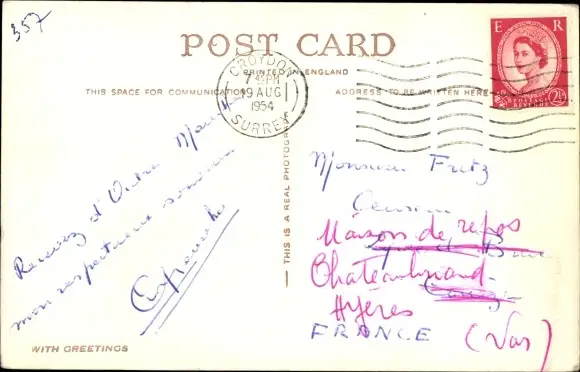 357
POST CARD
PRINTED IN ENGLAND
THIS SPACE FOR COMMUNICATION
ADDRESS TO BE WRITTEN HERE
E R
POSTAGE
REVENUE
2½
CROYDON
7 45 PM
19 AUG
1954
SURREY
Recevez d'Outre Manche
mon respectueux souvenir
THIS IS A REAL PHOTOGRAPH
Monsieur Fritz
Maison de repos
Chateaubriand
Hyères
FRANCE (Var)
WITH GREETINGS